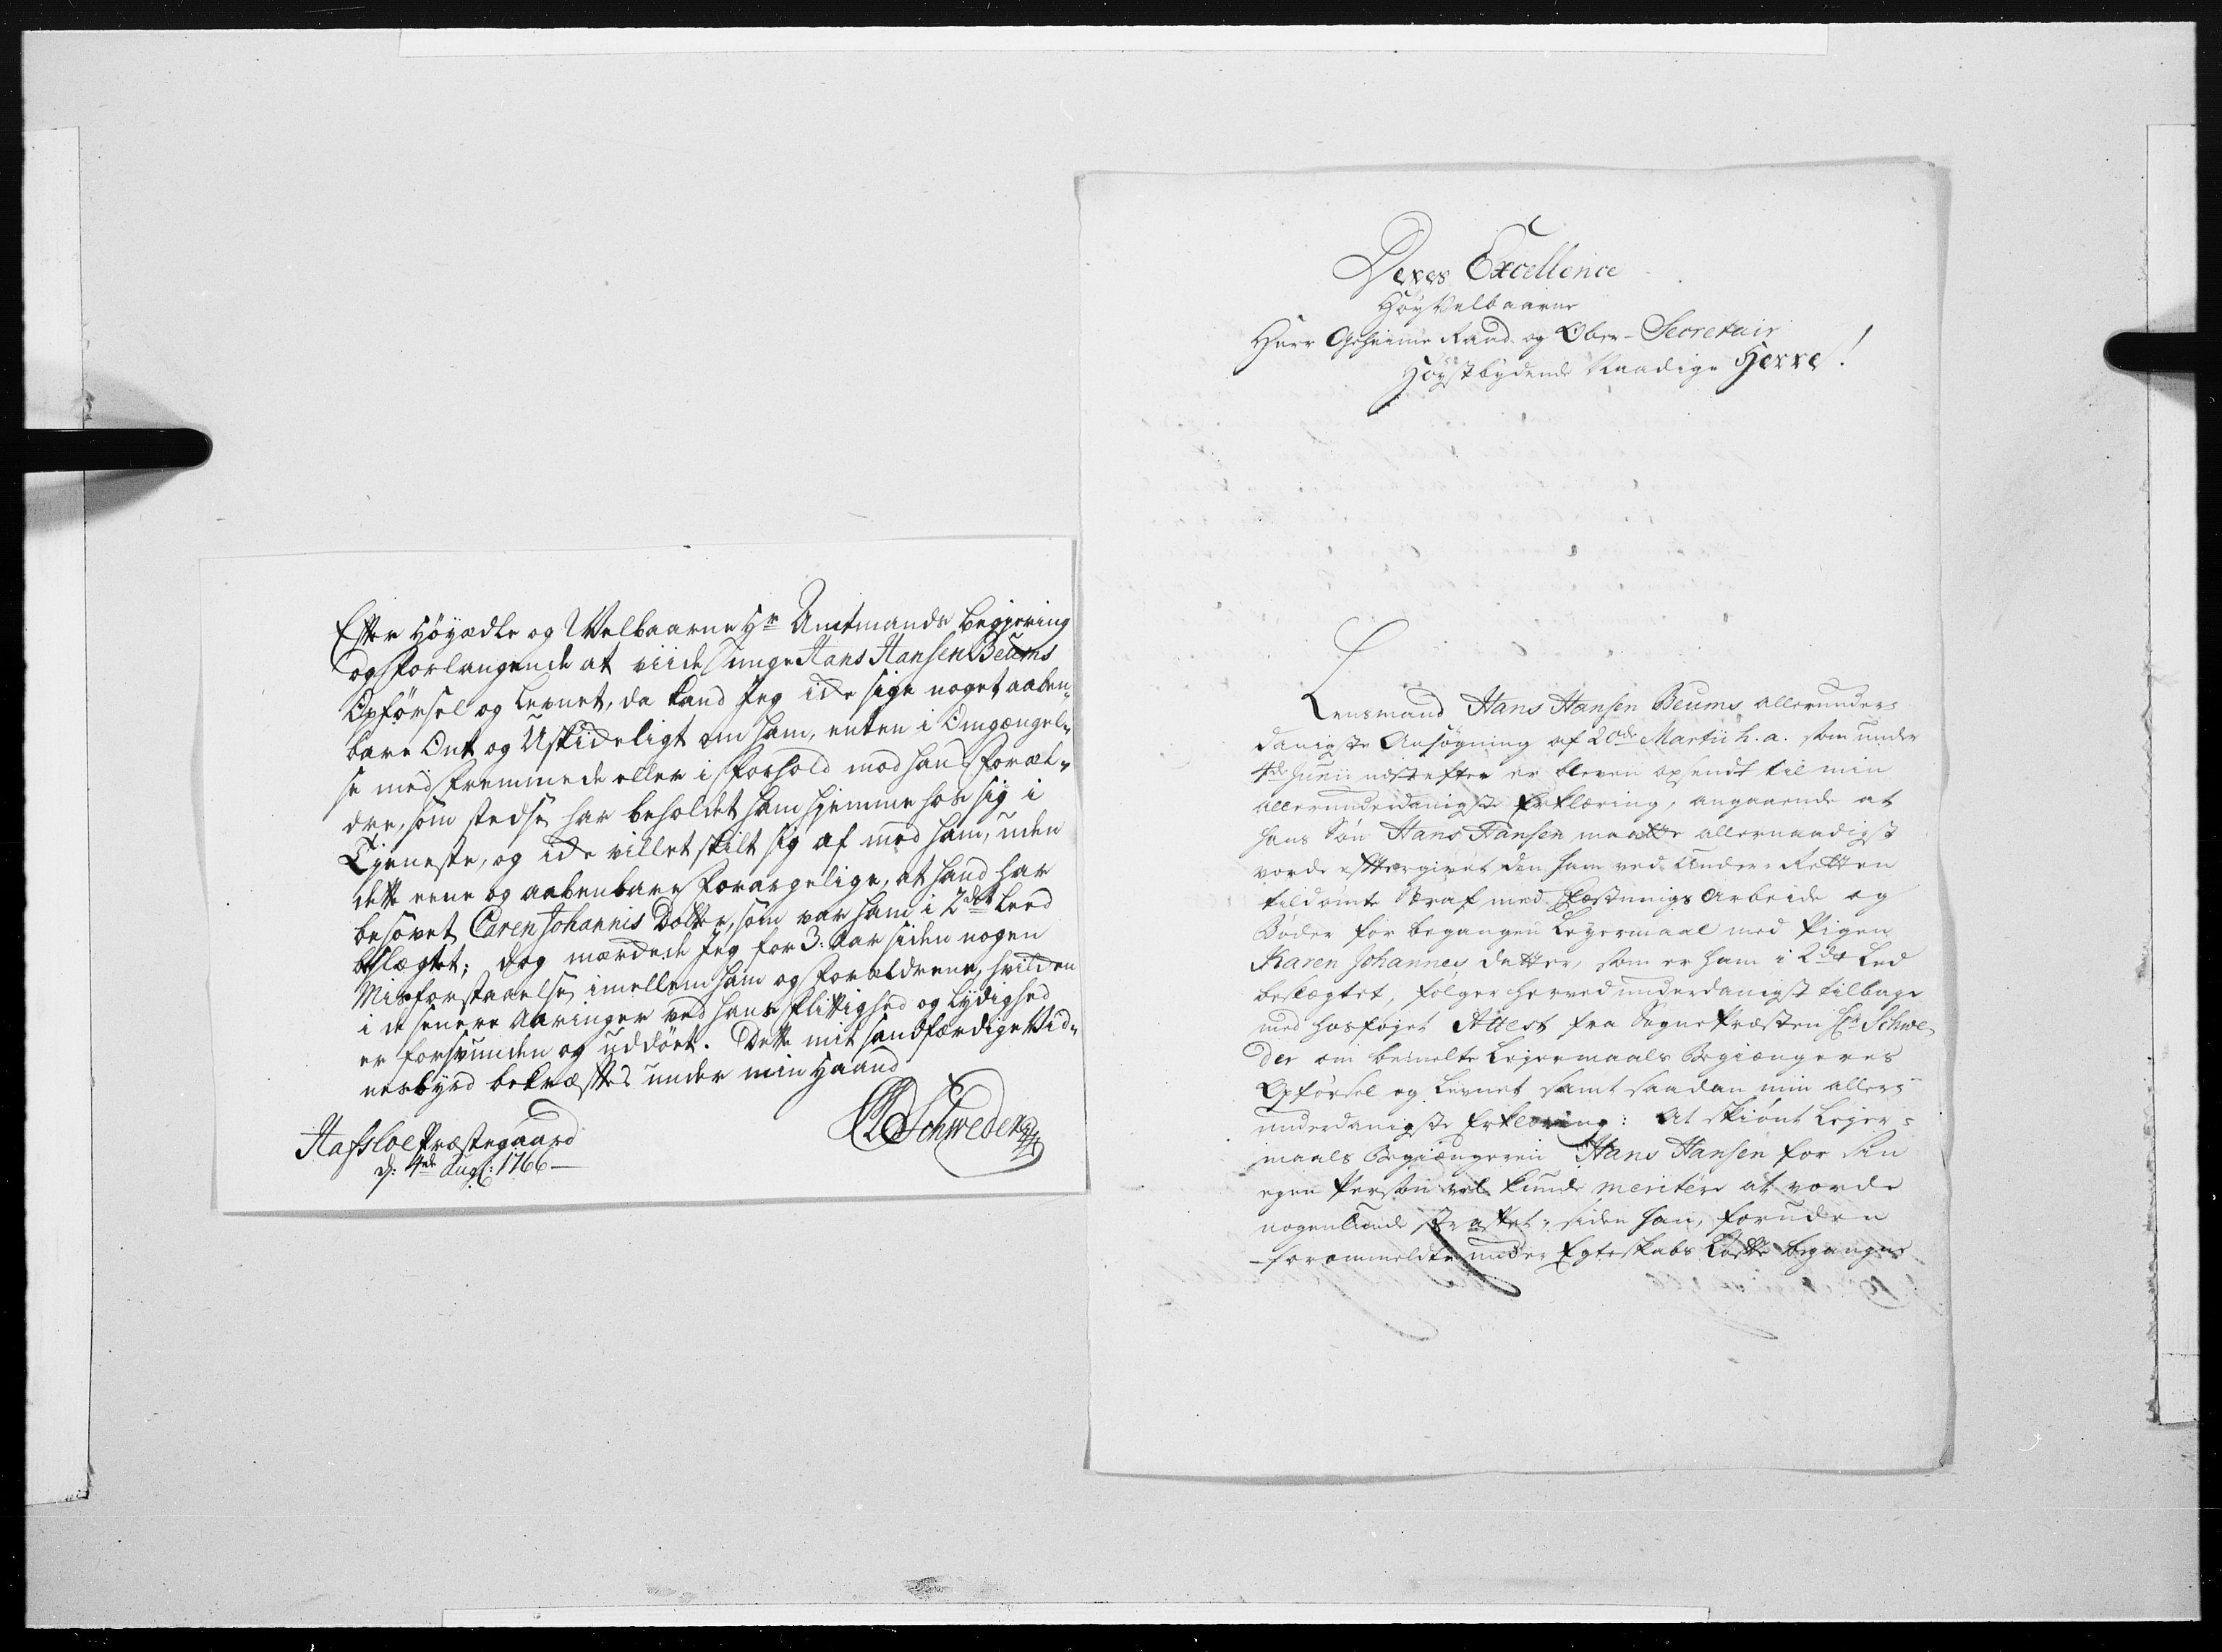 Efter Høyædle og Welbaarne Hr Amtmands begjering
og forlangende at viide unge Hans Hansen Beums
Opførsel og Levnet, da kand Jeg icke sige noget aaben„
bare Ont og Uskickeligt om ham, enten i Omgængel„
se med Fremmede eller i Forhold mod hans Foræl„
dre, som stedse har beholdet ham hjemme hos sig i
Tjeneste, og icke villet skilt sig af med ham, uden
dette eene og aabenbare Forargelige, at hand har
besovet Caren Johannis Dotter, som var ham i 2det Leed
beslægtet; dog mærckede Jeg for 3: Aar siden nogen
Misforstaaelse imellem ham og Forældrene, hvilcken
i de senere Aaringer ved hans Flittighed og Lydighed
er forsvunden og uddöet. Dette mit sandfærdige Vid„
nesbyrd bekræftes under min Haand
Hafsloe Præstegaard
d: 4de Aug: 1766
Schweder
Deres Excellence
HöyVelbaarne
Herr Geheime Raad og Ober-Secretair
Höystbydende Naadige Herre!
Lensmand Hans Hansen Beums allerunder-
danigste Ansøgning af 20de Martii h. a. som under
4de Junii næstefter er bleven opsendt til min
allerunderdanigste Erklæring, angaaende at
hans Søn Hans Hansen maatte allernaadigst
vorde eftergivet den ham ved Under-Retten
tildömte Straf med Fæstnings Arbeide og
Böder for begangen Leyermaal med Pigen
Karen Johannes datter, som er ham i 2det Led
beslægtet, følger herved underdanigst tilbage
med hosføyet Attest fra SognePræsten Hr Schwe-
der om bemelte Lejermaals Begiængeres
Opførsel og Levnet samt saadan min aller-
underdanigste Erklæring: At skiönt Lejer-
maals Begiængeren Hans Hansen for sin
egen Person vel kunde meritere at vorde
nogenlunde straffet, siden han, foruden
forommeldte under Egteskabs Löfte begangne